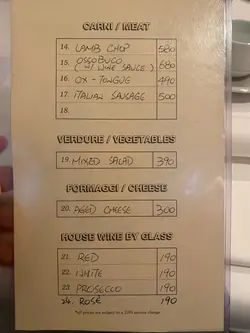 CARNI / MEAT
14. LAMB CHOP 580
15. OSSOBUCO (W/ WINE SAUCE) 680
16. OX-TONGUE 490
17. ITALIAN SAUSAGE 500
18.
VERDURE / VEGETABLES
19. MIXED SALAD 390
FORMAGGI / CHEESE
20. AGED CHEESE 300
HOUSE WINE BY GLASS
21. RED 190
22. WHITE 190
23. PROSECCO 190
24. ROSÉ 190
*all prices are subject to a 10% service charge